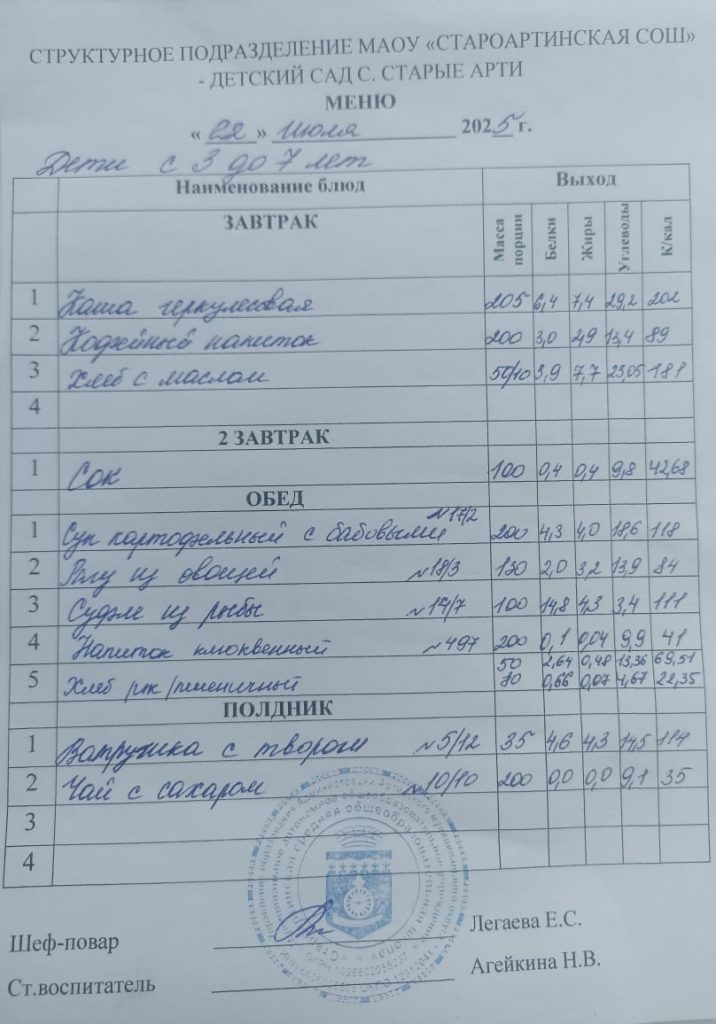 СТРУКТУРНОЕ ПОДРАЗДЕЛЕНИЕ МАОУ «СТАРОАРТИНСКАЯ СОШ»
- ДЕТСКИЙ САД С. СТАРЫЕ АРТИ
МЕНЮ
« » Июля 2025 г.
Дети с 3 до 7 лет
Наименование блюд Выход
ЗАВТРАК Масса порции Белки Жиры Углеводы К/кал
1 Каша геркулесовая 205 6,4 7,4 29,2 202
2 Кофейный напиток 200 3,0 2,9 13,4 89
3 Хлеб с маслом 50/10 3,9 7,7 23,05 181
4
2 ЗАВТРАК
1 Сок 100 0,4 0,4 9,8 42,68
ОБЕД
1 Суп картофельный с бабовыми №17/2 200 4,3 4,0 18,6 118
2 Рагу из овощей №18/3 130 2,0 3,2 13,9 84
3 Суфле из рыбы №14/7 100 14,8 4,3 3,4 111
4 Напиток клюквенный №497 200 0,1 0,04 9,9 41
50 2,64 0,48 13,36 69,51
5 Хлеб рж/пшеничный 0,66 0,07 4,67 22,35
ПОЛДНИК
1 Ватрушка с творогом №5/12 35 4,6 4,3 14,5 114
2 Чай с сахаром №10/10 200 0,0 0,0 9,1 35
3
4
Шеф-повар Легаева Е.С.
Ст.воспитатель Агейкина Н.В.